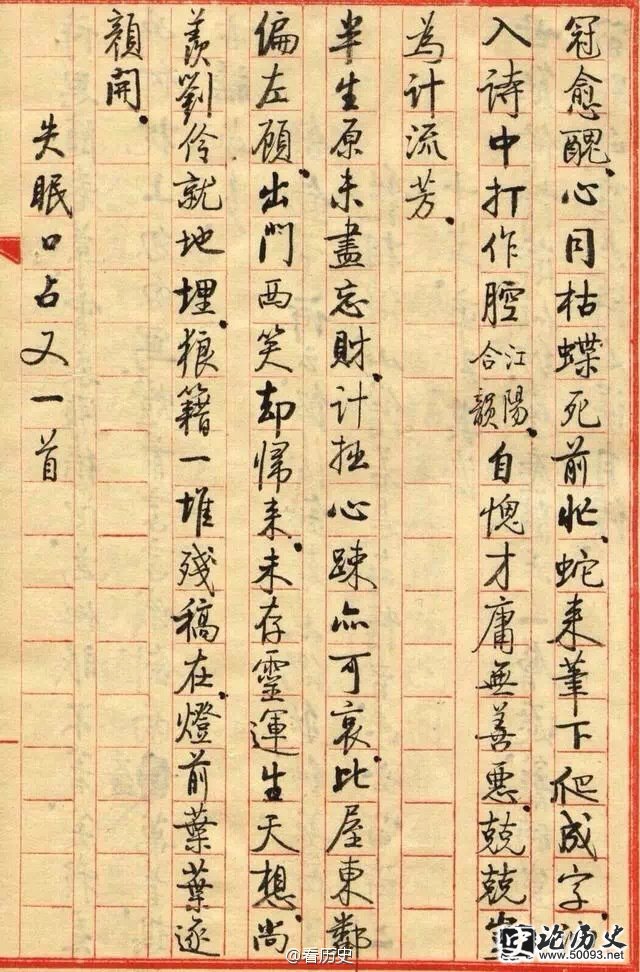 冠愈醜。心同枯蝶死前忙。蛇来筆下爬成字。
入詩中打作腔江陽合韻。自愧才庸無善惡。兢兢豈
為計流芳。
半生原未盡忘財。計拙心疎亦可哀。比屋東鄰
偏左顧。出門西笑却歸来。未存靈運生天想。尚
羨劉伶就地埋。狼籍一堆殘稿在。燈前葉葉逐
顏開。
失眠口占又一首
@看历史
论历史
www.50093.net